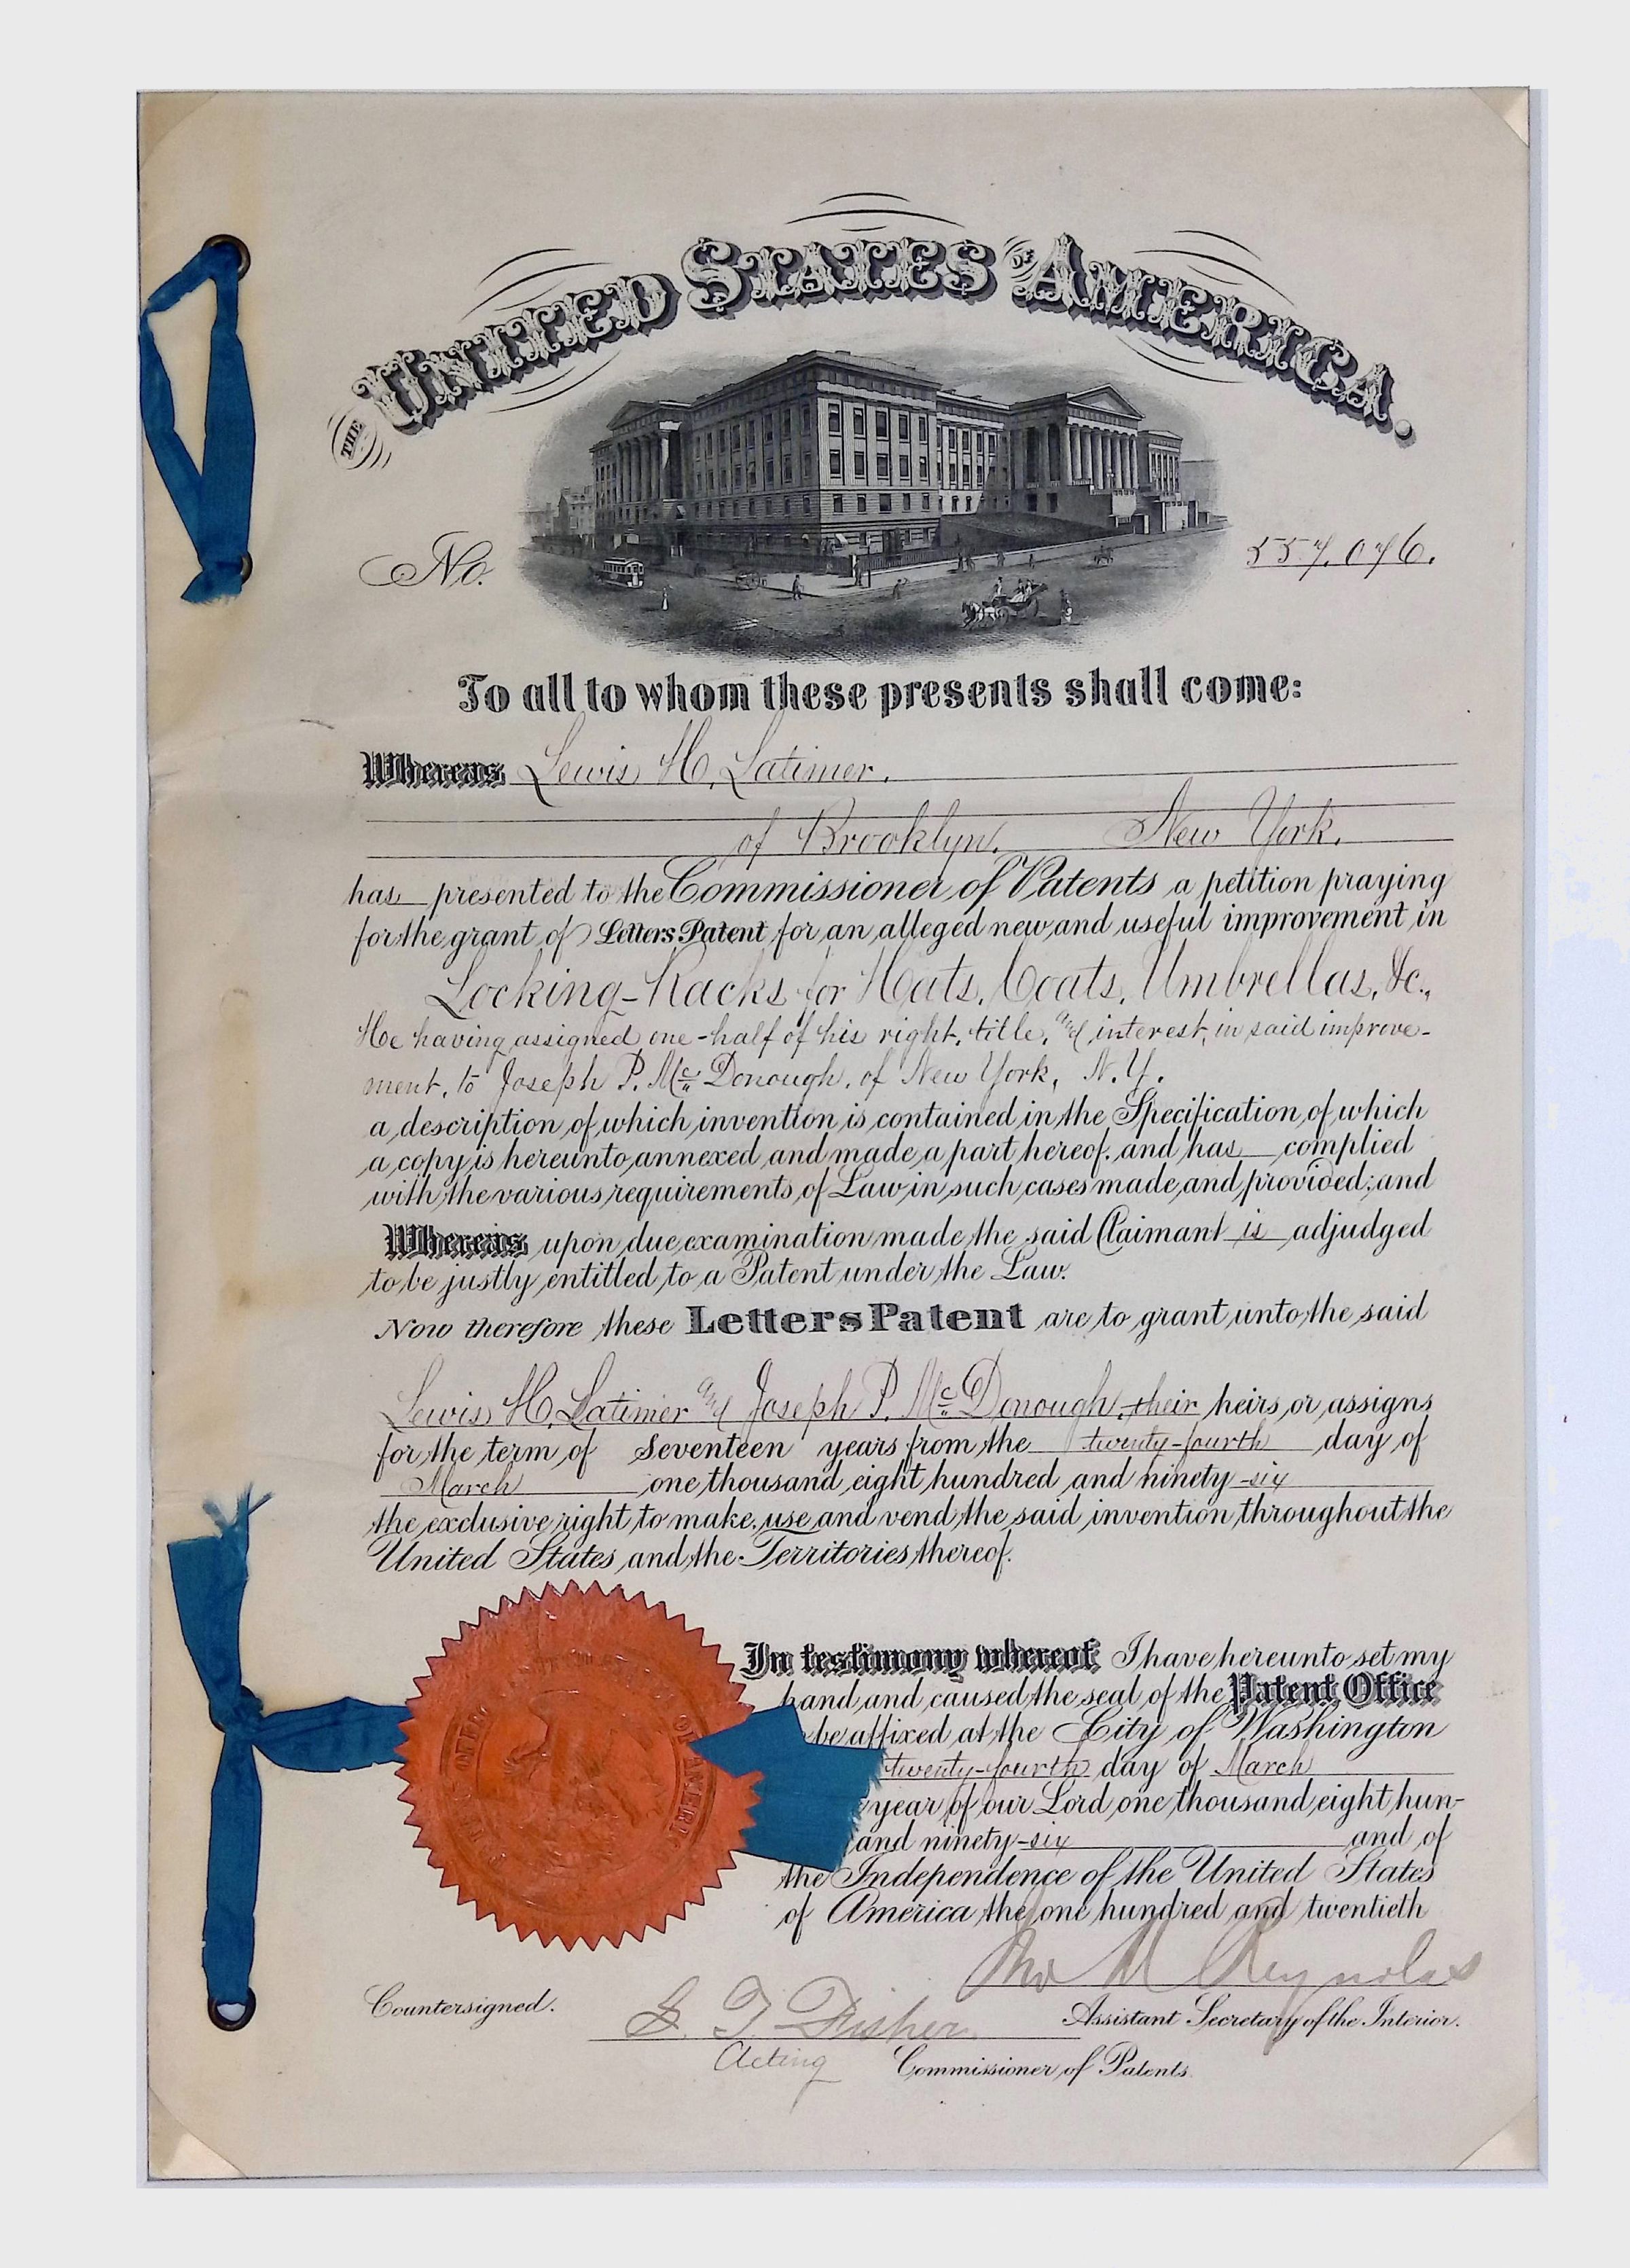 THE UNITED STATES OF AMERICA.
No. 557,076.
To all to whom these presents shall come:
Whereas Lewis H. Latimer,
of Brooklyn, New York,
has presented to the Commissioner of Patents a petition praying
for the grant of Letters Patent for an alleged new and useful improvement in
Locking-Racks for Hats, Coats, Umbrellas, &c.,
He having assigned one-half of his right, title, and interest, in said improve-
ment, to Joseph P. McDonough, of New York, N. Y.
a description of which invention is contained in the Specification of which
a copy is hereunto annexed and made a part hereof, and has complied
with the various requirements of Law in such cases made and provided; and
Whereas upon due examination made the said Claimant is adjudged
to be justly entitled to a Patent under the Law.
Now therefore these Letters Patent are to grant unto the said
Lewis H. Latimer and Joseph P. McDonough, their heirs or assigns
for the term of Seventeen years from the twenty-fourth day of
March one thousand eight hundred and ninety-six
the exclusive right to make, use and vend the said invention throughout the
United States and the Territories thereof.
In testimony whereof I have hereunto set my
hand and caused the seal of the Patent Office
be affixed at the City of Washington
twenty-fourth day of March
year of our Lord one thousand eight hun-
and ninety-six and of
the Independence of the United States
of America the one hundred and twentieth
Jno M Reynolds
Countersigned. S. T. Fisher Assistant Secretary of the Interior.
Acting Commissioner of Patents.